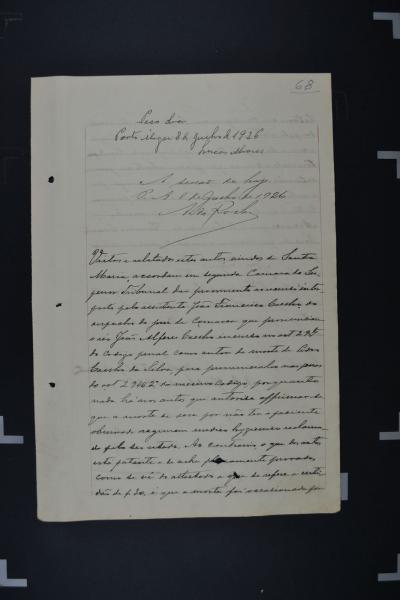 68
Peço dia.
Porto Alegre 8 de Junho de 1926
A sessão de hoje.
P. A. 8 de Junho de 1926
Vistos e relatados estes autos vindos de Santa
Maria, accordam em segunda Camara do Su-
perior Tribunal dar provimento ao recurso inter
posto pelo assistente João Francisco Coelho, do
despacho do juiz de Comarca que pronunciou
o réo João Alfredo Coelho incurso no art 297
do Codigo penal como autor da morte de
Coelho da Silva, para pronuncial-o nas penas
do art 294 § 2º do mesmo Codigo, porquanto
nada ha nos autos que autorise affirmar-se
que a morte se dera por não ter a paciente
observado regimen medico hygienico reclama-
do pelo seu estado. Ao contrario, o que dos autos
está patente e se acha plenamente provado,
como se vê do attestado a que se refere a certi-
dão de f 30, é que a morte foi occasionada por